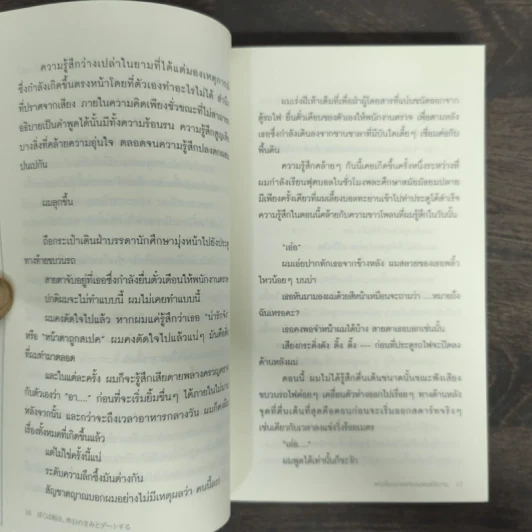 ความรู้สึกว่างเปล่าในยามที่ได้แต่มองเหตุการณ์
ซึ่งกำลังเกิดขึ้นตรงหน้าโดยที่ตัวเองทำอะไรไม่ได้
ที่ปราศจากเสียง ภายในความคิดเพียงชั่วขณะที่ไม่สามารถ
อธิบายเป็นคำพูดได้นั้นมีทั้งความร้อนรน ความรู้สึก
บางสิ่งที่คล้ายความอุ่นใจ ตลอดจนความรู้สึกปลงตก
ปนเปกัน
ผมลุกขึ้น
ถือกระเป๋าเดินฝ่าบรรดานักศึกษามุ่งหน้าไปยังประตู
ทางท้ายขบวนรถ
สายตาจับอยู่ที่เธอซึ่งกำลังยื่นตั๋วเดือนให้พนักงานตรวจ
ปกติผมจะไม่ทำแบบนี้ ผมไม่เคยทำแบบนี้
ผมคงตัดใจไปแล้ว หากผมแค่รู้สึกว่าเธอ "น่ารักจัง"
หรือ "หน้าตาถูกสเปค" ผมคงตัดใจไปแล้วแน่ๆ มันคือสิ่ง
ที่ผมทำมาตลอด
และในแต่ละครั้ง ผมก็จะรู้สึกเสียดายพลางครวญ
กับตัวเองว่า "อา...." ก่อนที่จะเริ่มยิ้มขื่นๆ ได้ภายในไม่นาน
หลังจากนั้น และกว่าจะถึงเวลาอาหารกลางวัน ผมก็
เรื่องทั้งหมดที่เกิดขึ้นแล้ว
แต่ไม่ใช่ครั้งนี้แน่
ระดับความลึกซึ้งมันต่างกัน
สัญชาตญาณบอกผมอย่างไม่มีเหตุผลว่า คนนี้
16 ぼくは明日、昨日のきみとデートする
ผมเร่งฝีเท้าเต็มที่เพื่อฝ่าผู้โดยสารที่แน่นขนัดออกจาก
ตู้รถไฟ ยื่นตั๋วเดือนของตัวเองให้พนักงานตรวจ เพื่อตามหลัง
เธอซึ่งกำลังเดินลงจากชานชาลาที่มีบันไดเตี้ยๆ เชื่อมต่อกับ
พื้นดิน
ความรู้สึกคล้ายๆ กันนี้เคยเกิดขึ้นครั้งหนึ่งระหว่างที่
ผมกำลังเรียนฟุตบอลในชั่วโมงพละศึกษาสมัยมัธยมปลาย
มีเพียงครั้งเดียวที่ผมเลี้ยงบอลทะยานเข้าไปทำประตูได้สำเร็จ
ความรู้สึกในตอนนี้คล้ายกับความขาวโพลนที่ผมรู้สึกในวันนั้น
"เอ่อ"
ผมเอ่ยปากทักเธอจากข้างหลัง ผมสลวยของเธอพลิ้ว
ไหวน้อยๆ บนบ่า
เธอหันมามองผมด้วยสีหน้าเหมือนจะถามว่า ....หมายถึง
ฉันเหรอคะ?
เธอคงพอจำหน้าผมได้บ้าง สายตาเธอบอกเช่นนั้น
เสียงกระดิ่งดัง ติ๊ง ติ๊ง — ก่อนที่ประตูรถไฟจะปิดลง
ด้านหลังผม
ตอนนี้ ผมไม่ได้รู้สึกตื่นเต้นขนาดนั้นขณะฟังเสียง
ขบวนรถไฟค่อยๆ เคลื่อนตัวห่างออกไปเรื่อยๆ ทางด้านหลัง
จุดที่ตื่นเต้นที่สุดคือตอนก่อนจะเริ่มออกสตาร์ทจริงๆ
เช่นเดียวกับเวลาลงแข่งวิ่งร้อยเมตร
"เอ่อ...."
ผมพูดได้เท่านั้นก็ชะงัก
17